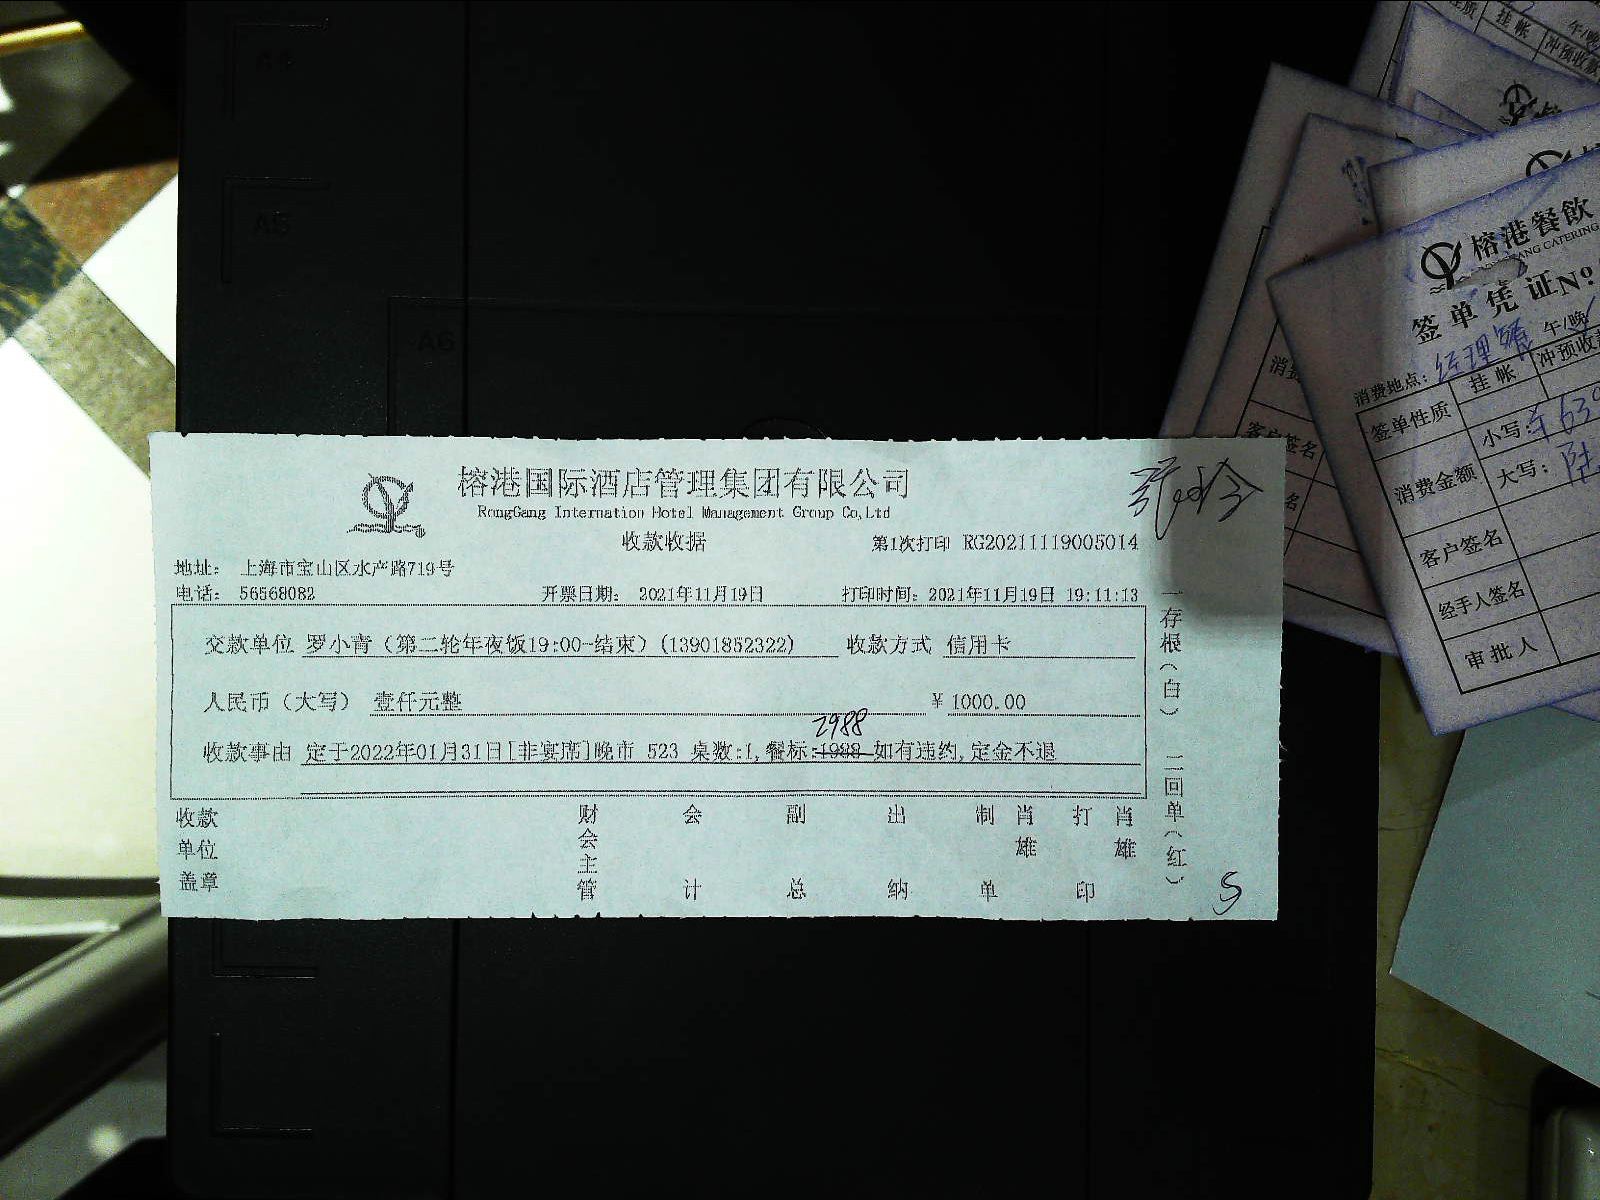 榕港国际酒店管理集团有限公司
RongGang Internation Hotel Management Group Co,Ltd
收款收据
第1次打印 RG20211119005014
地址： 上海市宝山区水产路719号
电话： 56568082 开票日期： 2021年11月19日 打印时间：2021年11月19日 19:11:13
交款单位 罗小青（第二轮年夜饭19:00-结束）(13901852322) 收款方式 信用卡
人民币（大写） 壹仟元整 ¥ 1000.00
2988
收款事由 定于2022年01月31日[非宴席]晚市 523 桌数:1,餐标:1988 如有违约,定金不退
一存根（白） 二回单（红）
收款单位盖章 财会主管 会计 副总 出纳 制单 肖雄 打印 肖雄
5
A5
A6
榕港餐飲
签单凭证№
消费地点： 经理餐 午/晚
签单性质 挂帐 冲预收款
消费金额 小写：¥630
大写：陆
客户签名
经手人签名
审批人
挂帐
冲预收款
客户签名